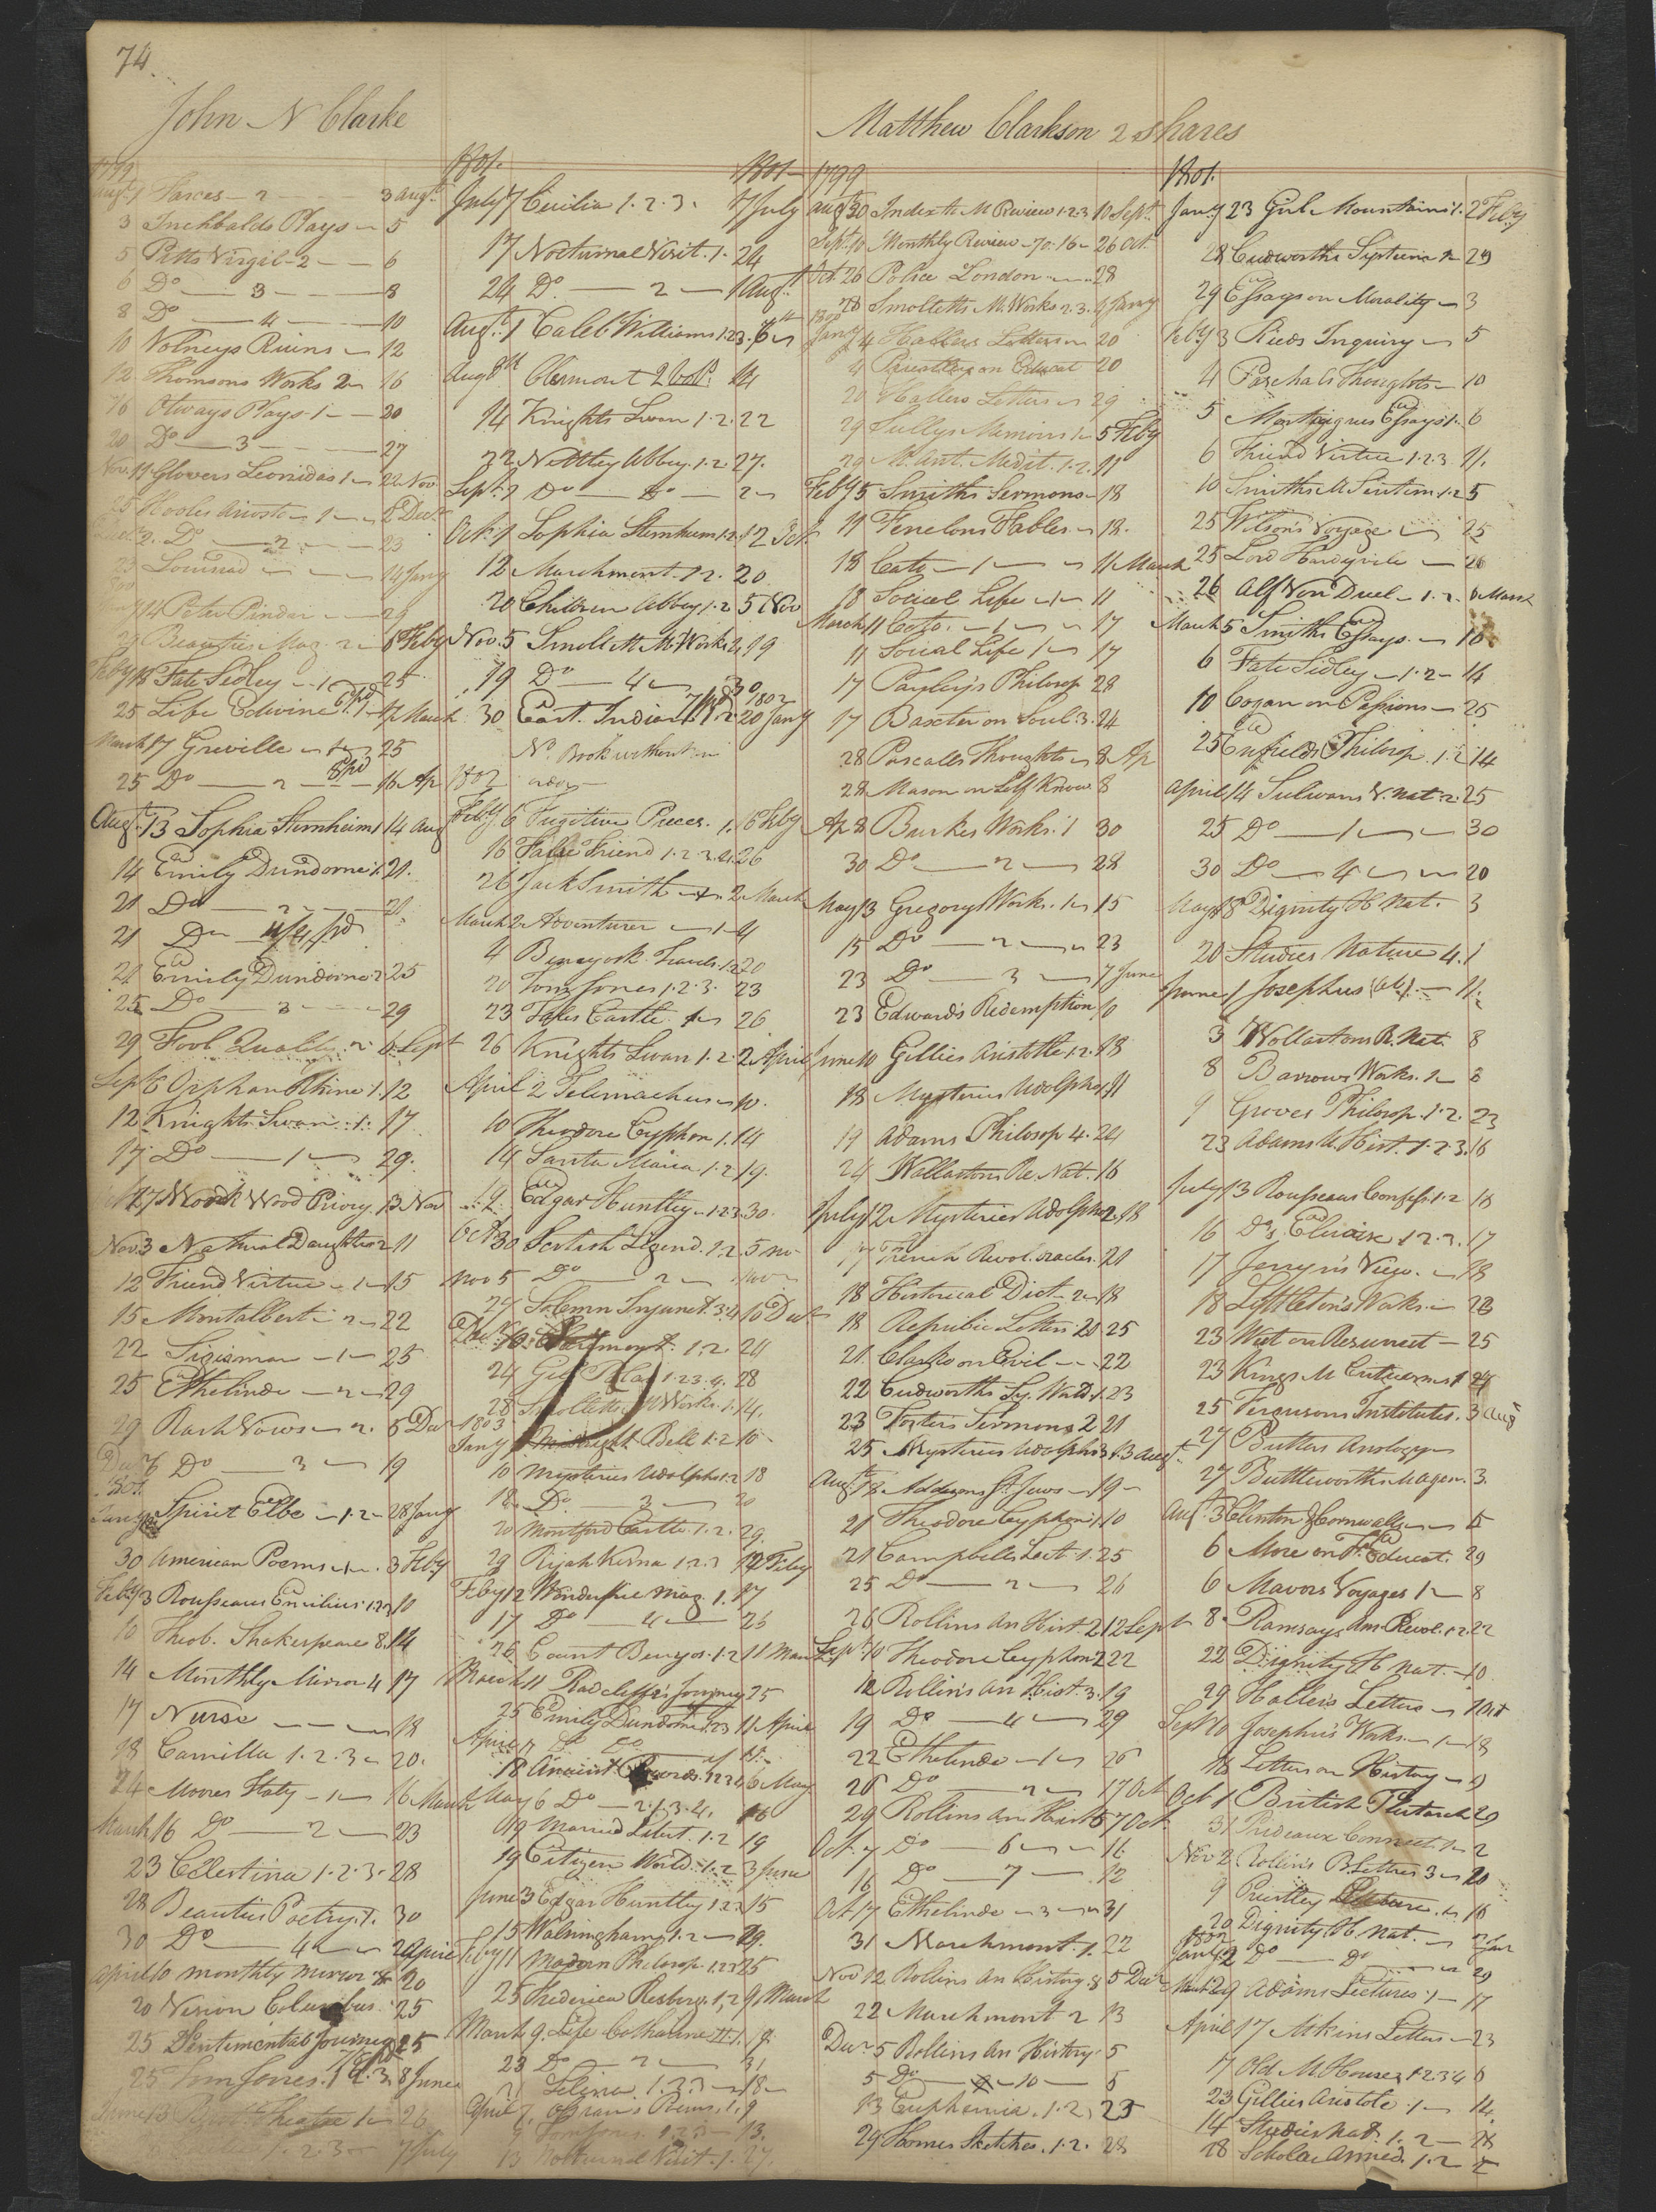 74
John N Clarke
1799
Augt 1 Farces - 2 3 Augt
3 Inchbalds Plays 5
5 Pitts Virgil - 2 6
6 Do 3 8
8 Do 4 10
10 Volneys Ruins 12
12 Thomsons Works 2 16
16 Otways Plays 1 20
20 Do 3 27
Nov. 11 Glovers Leonidas 1 22 Nov.
25 Hooles Ariosto 1 2 Decr
Decr 2. Do 2 23
23 Lousiad 14 Jany
14 Peter Pindar 29
29 Beauties Mag. 2 6 Feby
Feby 18 Fate Sedley 1 25
25 Life Edwine 1 17 March
March 17 Greville 1 25
25 Do 2 pd 16 Ap
Augt 13 Sophia Sternheim 1 14 Aug
14 Emily Dundorne 1. 21.
21 Do 2 21.
21 Do 4/4 pd
21 Emily Dundorne 2 25
25 Do 3 29
29 Fool Quality 2 6 Sept
Sept 6 Orphan Rhine 1. 12
12 Knights Swan 1. 17
17 Do 1 29.
27 Wood Priory. 13 Nov
Nov. 3 Natural Daughter 2 11
12 Friend Virtue 1 15
15 Montalbert 2 22
22 Sigismar 1 25
25 Ethelinde 2 29
29 Rash Vows 2. 6 Decr
Decr 6 Do 3 19
1801.
Jany Spirit Elbe 1.2 28 Jany
30 American Poems 3 Feby
Feby 3 Rousseaus Emilius 1.2.3 10
10 Theob. Shakespeare 8. 14
14 Monthly Mirror 4 17
17 Nurse 18
18 Camilla 1.2.3 20.
24 Moores Italy 1 16 March
March 16 Do 2 23
23 Celestina 1.2.3 28
28 Beauties Poetry. 1. 30
30 Do 4 2 April
April 10 Monthly Mirror 20
20 Vision Columbus 25
25 Sentimental Journey 25
25 Tom Jones. 1.2.3 8 June
June 13 Theatre 1 26
1.2.3 7 July
1801.
1801
July 7 Cecilia 1.2.3. 17 July
17 Nocturnal Visit. 1. 24
24 Do 2 1 Augt
Augt 1 Caleb Williams 1.2.3. 6
Aug 8th Clermont 2 Vol. 14
14 Knights Swan 1.2. 22
22 Nettley Abbey. 1.2. 27.
Sept. 2 Do Do 2
Oct. 1 Sophia Sternheim 1.2. 12 Oct.
12 Marchmont. 1.2. 20
20 Children Abbey 1.2 5 Nov
Nov. 5 Smollett M. Works 2. 19
19 Do 4 30
1802
30 East. Indian 1.2. 20 Jany
No Book without an
order
1802
Feby 6 Fugitive Pieces. 1. 16 Feby
16 False Friend 1.2.3.4. 26
26 Jack Smith 2 March
March 2 Adventurer 1 4
4 Benyowk. Travels 1.2 20
20 Tom Jones 1.2.3. 23
23 Tales Castle 26
26 Knights Swan 1.2. 2 April
April 2 Telemachus 10.
10 Theodore Cyphon 1. 14
14 Santa Maria 1.2 19.
19. Edgar Huntley 1.2.3. 30.
Oct 30 Scotish Legend. 1.2. 5 no.
Nov 5 Do 2
24 Solemn Injunct. 3.4 10 Decr
Decr 10. Clermont. 1.2. 24
24 Gil Blas 1.2.3.4. 28
28 Smolletts M Works. 1. 14.
1803
Jany 1 Midnight Bell 1.2 10
10 Mysteries Udolpho 1.2 18
18. Do 3 20
20 Montford Castle. 1.2. 29.
29 Rijah Kerna 1.2.3 12 Feby
Feby 12 Wonderful Mag. 1. 17
17 Do 4 26
26 Count Benyos. 1.2 11 March
March 11 Radcliffe's Journey 25
25 Emily Dundorne 1.2.3 11 April
April 11 Do Do
18 Ancient Records. 1.2.3.4 6 May
May 6 Do 2.1.3.4. 16
Married Libert. 1.2 19
19 Citizen World. 1.2 3 June
June 3 Edgar Huntley 1.2.3 15
15 Walsingham. 1.2 29.
Feby 11 Modern Philosop. 1.2.3 25
25 Frederica Risberg. 1.2 9 March
March 9. Life Catharine II. 1. 19.
23 Do 2 31
Selina. 1.2.3 18
April 7. Ossians Poems. 1. 9
9 Tom Jones. 1.2.3 13.
13 Nocturnal Visit. 1. 27.
Matthew Clarkson 2 shares
1799
Augt 30 Index to M Review 1.2.3 10 Sept.
Sept. 10 Monthly Review 70. 16 26 Oct.
Oct. 26 Police London 28
28 Smolletts M. Works 2.3. 4 Jany
1800
Jany 4 Hallers Letters 20
4 Priestley on Educat 20
20 Hallers Letters 29
29 Sullys Memoirs 1 5 Feby
29 M. Ant. Medit. 1.2. 11
Feby 5 Smiths Sermons 18
11 Fenelons Fables 18.
18 Cato 1 11 March
18 Social Life 1 11
March 11 Cato 1 17
11 Social Life 1 17
17 Payley's Philosop 28
17 Baxter on Soul. 3. 24
28 Pascalls Thoughts 8 Ap
28 Mason on Self Know 8
Ap 8 Burkes Works. 1 30
30 Do 2 28
May 13 Gregory Works. 1 15
15 Do 2 23
23 Do 3 7 June
23 Edwards Redemption 10
June 10 Gillies Aristotle 1.2. 18
18 Mysteries Udolpho 1 11
19 Adams Philosop 4. 24
24 Wallastons Re. Nat. 16
July 12 Mysteries Udolpho 2. 18
17 French Revol. Oracles. 21
18 Historical Dict 2 18
18 Republic Letters 20 25
21. Clarke on Evil 22
22 Cudworths Sy. World. 1. 23
23 Fosters Sermons 2 21
25 Mysteries Udolpho 3 13 Augt
Augt 18 Addisons St. Jews 19
21 Theodore Cyphon 1. 10
21 Campbells Lect. 1. 25
25 Do 2 26
26 Rollins An Hist. 2 12 Sept
Sept. 10 Theodore Cyphon 2 22
12 Rollins An Hist. 3. 19
19 Do 4 29
22 Ethelinde 1 26
26 Do 2 17 Oct
29 Rollins An Hist 5 7 Oct
Oct. 7 Do 6 16
16 Do 7 12
Oct 17 Ethelinde 3 31
31 Marchmont. 1. 22
Nov 12 Rollins An History. 8 5 Decr
22 Marchmont 2 13
Decr 5 Rollins An History 5
5 Do 10 5
13 Euphemia. 1.2. 23
29 Homes Sketches. 1.2. 28
1801.
Jany 23 Gul. Mountains 1. 2 Feby
28 Cudworths Systema 29
29 Essays on Morality 3
Feby 3 Rieds Inquiry 5
4 Paschals Thoughts 10
5 Montaignes Essays 1. 6
6 Friend Virtue 1.2.3. 11.
10 Smiths M Sentim. 1.2 5
25 Wilsons Voyage 25
25 Lord Hardyvile 26
26 Alf Von Duel 1.2. 6 March
March 5 Smiths Essays. 10
6 Fate Sedley 1.2 14
10 Cogan on Passions 25
25 Enfields Philosop. 1.2 14
April 14 Sulivans V. Nat. 2. 25
25 Do 1 30
30 Do 4 20
May 18 Dignity H. Nat. 3
20 Studies Nature 4. 1
June 1 Josephus 11.
3 Wollastons R. Nat. 8
8 Barrows Works. 1 8
9 Groves Philosop. 1.2. 23
23 Adams U. Hist. 1.2.3. 16
July 13 Rousseaus Confess. 1.2 16
16 Do Eloisa 1.2.3. 17
17 Jenyn's View. 18
18 Lyttleton's Works 23
23 West on Resurrect 25
23 Kings M Criticisms 1 27
25 Fergusons Institutes. 3 Augt
27 Butlers Analogy
27 Buttleworths Magaz. 3.
Augt 3 Clinton & Cornwallis 5
6 More on F. Educat. 29
6 Mavors Voyages 1 8
8 Ramsays Am. Revol. 1.2 22
22 Dignity H Nat. 10
29 Hallers Letters 1 Oct
Sept 10 Josephus Works 1 18
18 Letters on History 9
Oct 1 British Plutarch 29
31 Prideaux Connect. 1 2
Nov 2 Rollins B. Lettres 3 20
9 Priestley 16
20 Dignity H. Nat. 2 Jan
1802
Jany 2 Do Do 29
March 29 Adams Lectures. 1 17
April 17 Atkins Letters 23
7 Old M. House 1.2.3.4 6
23 Gillies Aristotle 1 14
14 Studies Nat. 1.2 28
28 Scholar Armed. 1.2 5